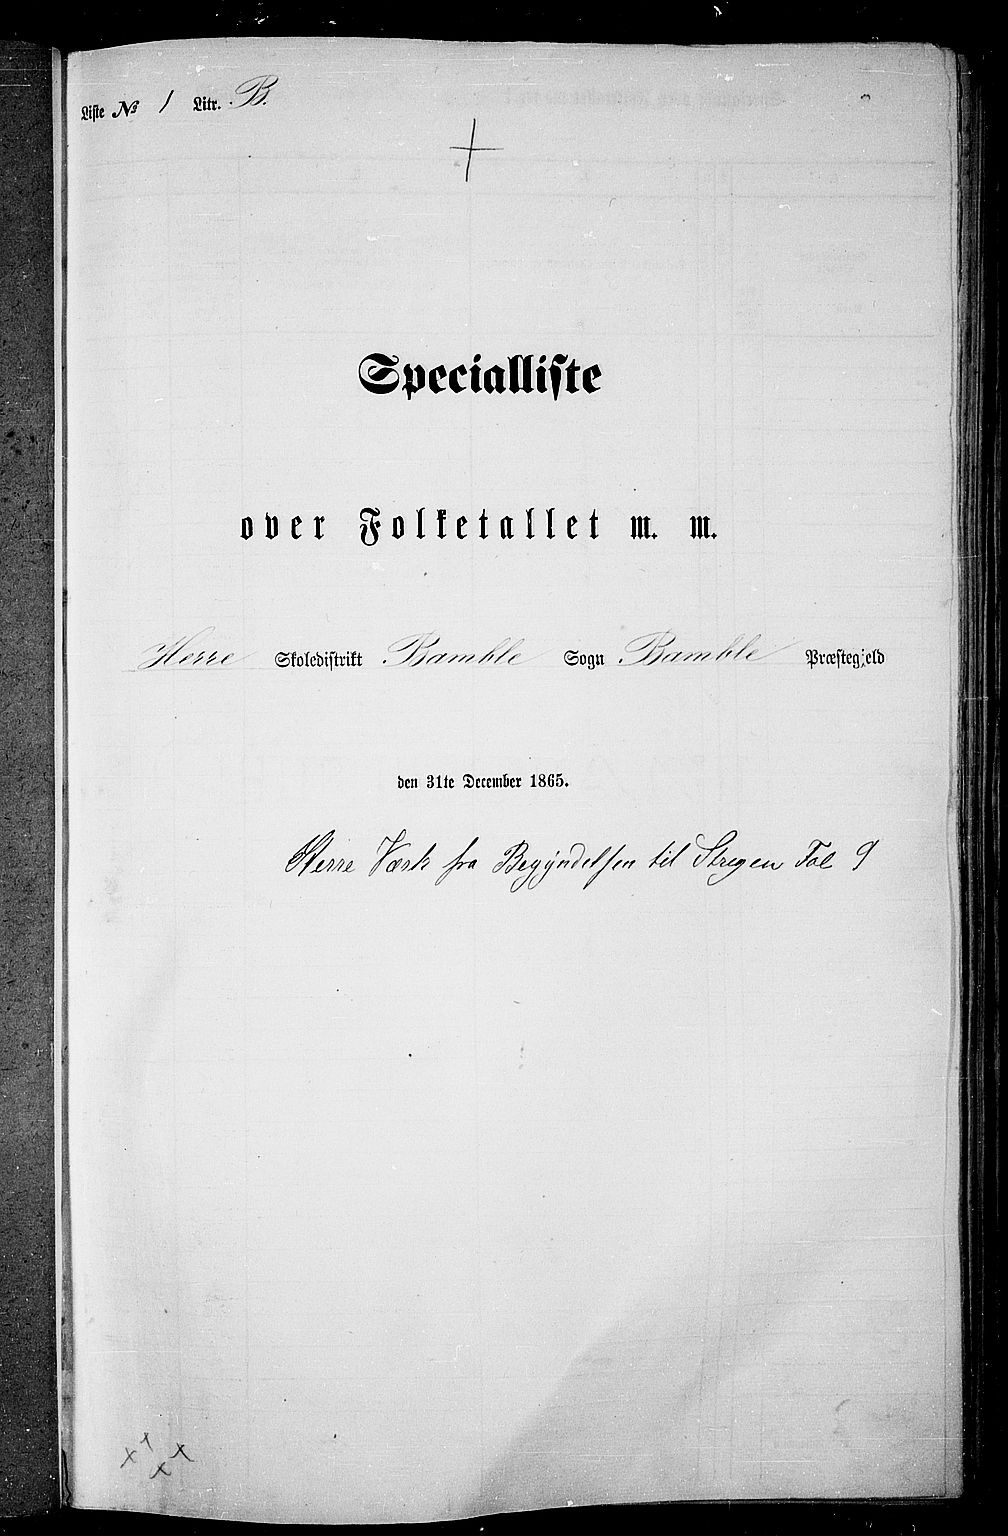 Liste № 1 Litr. B.
Specialliste
over Folketallet m. m.
Herre Skoledistrikt Bamble Sogn Bamble Præstegjeld
den 31te December 1865.
Herre Værk fra Begyndelsen til Stregen Fol 9